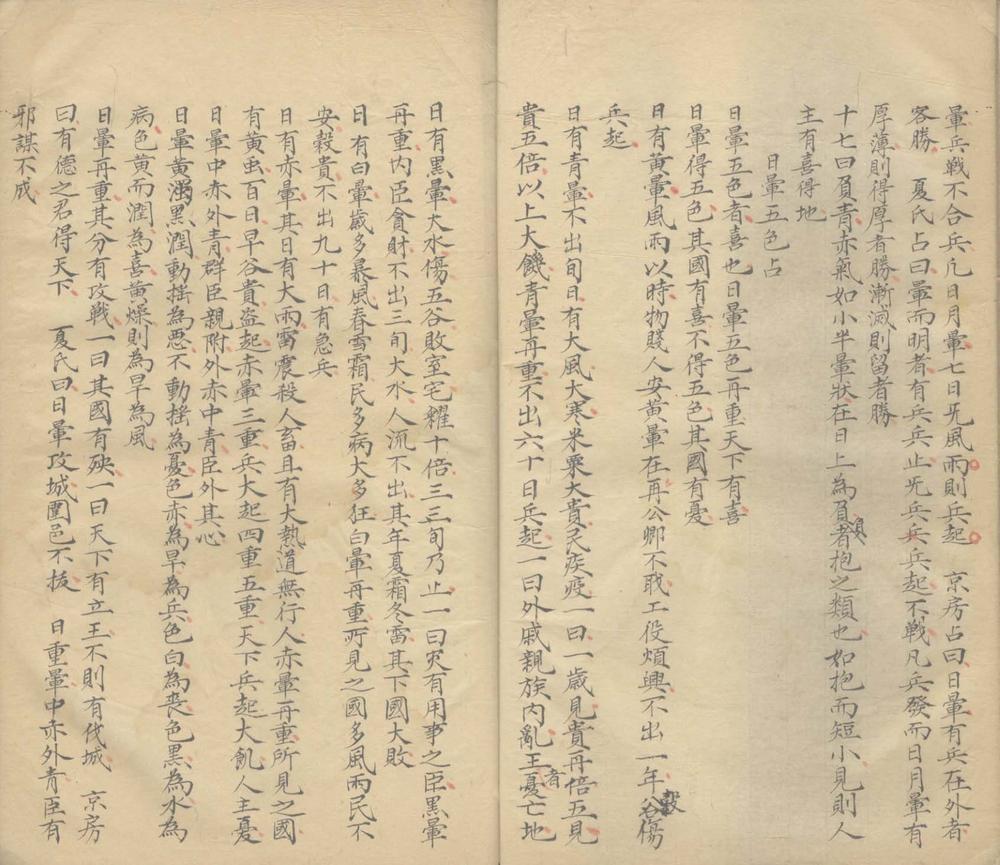 暈兵戰不合兵凢日月暈七日旡風雨則兵起　京房占曰日暈有兵在外者
客勝　夏氏占曰暈而明者有兵兵止旡兵兵兵起不戰凡兵發而日月暈有
厚薄則得厚者勝漸滅則留者勝
十七曰負青赤氣如小半暈狀在日上為負負者抱之類也如抱而短小見則人
主有喜得地
日暈五色占
日暈五色者喜也日暈五色再重天下有喜
日暈得五色其國有喜不得五色其國有憂
日有黃暈風雨以時物賤人安黃暈在再公卿不戢工役煩興不出一年穀傷
兵起
日有青暈不出旬日有大風大寒米粟大貴災疾疫一曰一歲見貴再倍五見
貴五倍以上大饑青暈再重不出六十日兵起一曰外戚親族內亂王者憂亡地
日有黑暈大水傷五谷敗室宅糴十倍三三旬乃止一曰灾有用事之臣黑暈
再重內臣貪財不出三旬大水人流不出其年夏霜冬雷其下國大敗
日有白暈歲多暴風春雪霜民多病大多狂白暈再重所見之國多風雨民不
安穀貴不出九十日有急兵
日有赤暈其日有大雨雷震殺人畜且有大熱道無行人赤暈再重所見之國
有黃虫百日旱谷貴盜起赤暈三重兵大起四重五重天下兵起大飢人主憂
日暈中赤外青群臣親附外赤中青臣外其心
日暈黃濁黑潤動搖為惡不動搖為憂色赤為旱為兵色白為喪色黑為水為
病色黃而潤為喜黃燥則為旱為風
日暈再重其分有攻戰一曰其國有殃一曰天下有立王不則有伐城　京房
曰有德之君得天下　夏氏曰日暈攻城圍邑不拔　日重暈中赤外青臣有
邪謀不成